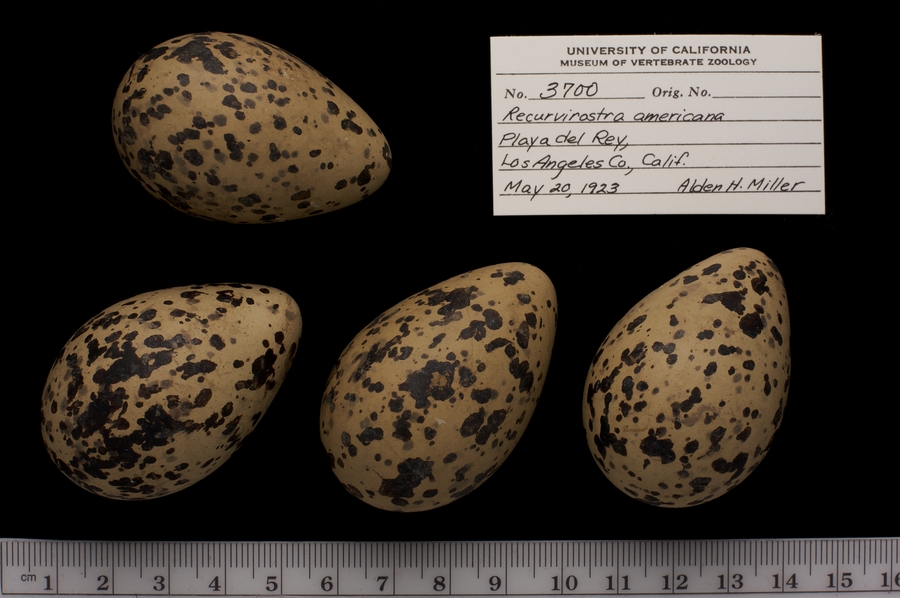 UNIVERSITY OF CALIFORNIA
MUSEUM OF VERTEBRATE ZOOLOGY
No. 3700 Orig. No.
Recurvirostra americana
Playa del Rey,
Los Angeles Co., Calif.
May 20, 1923 Alden H. Miller
cm 1 2 3 4 5 6 7 8 9 10 11 12 13 14 15 16